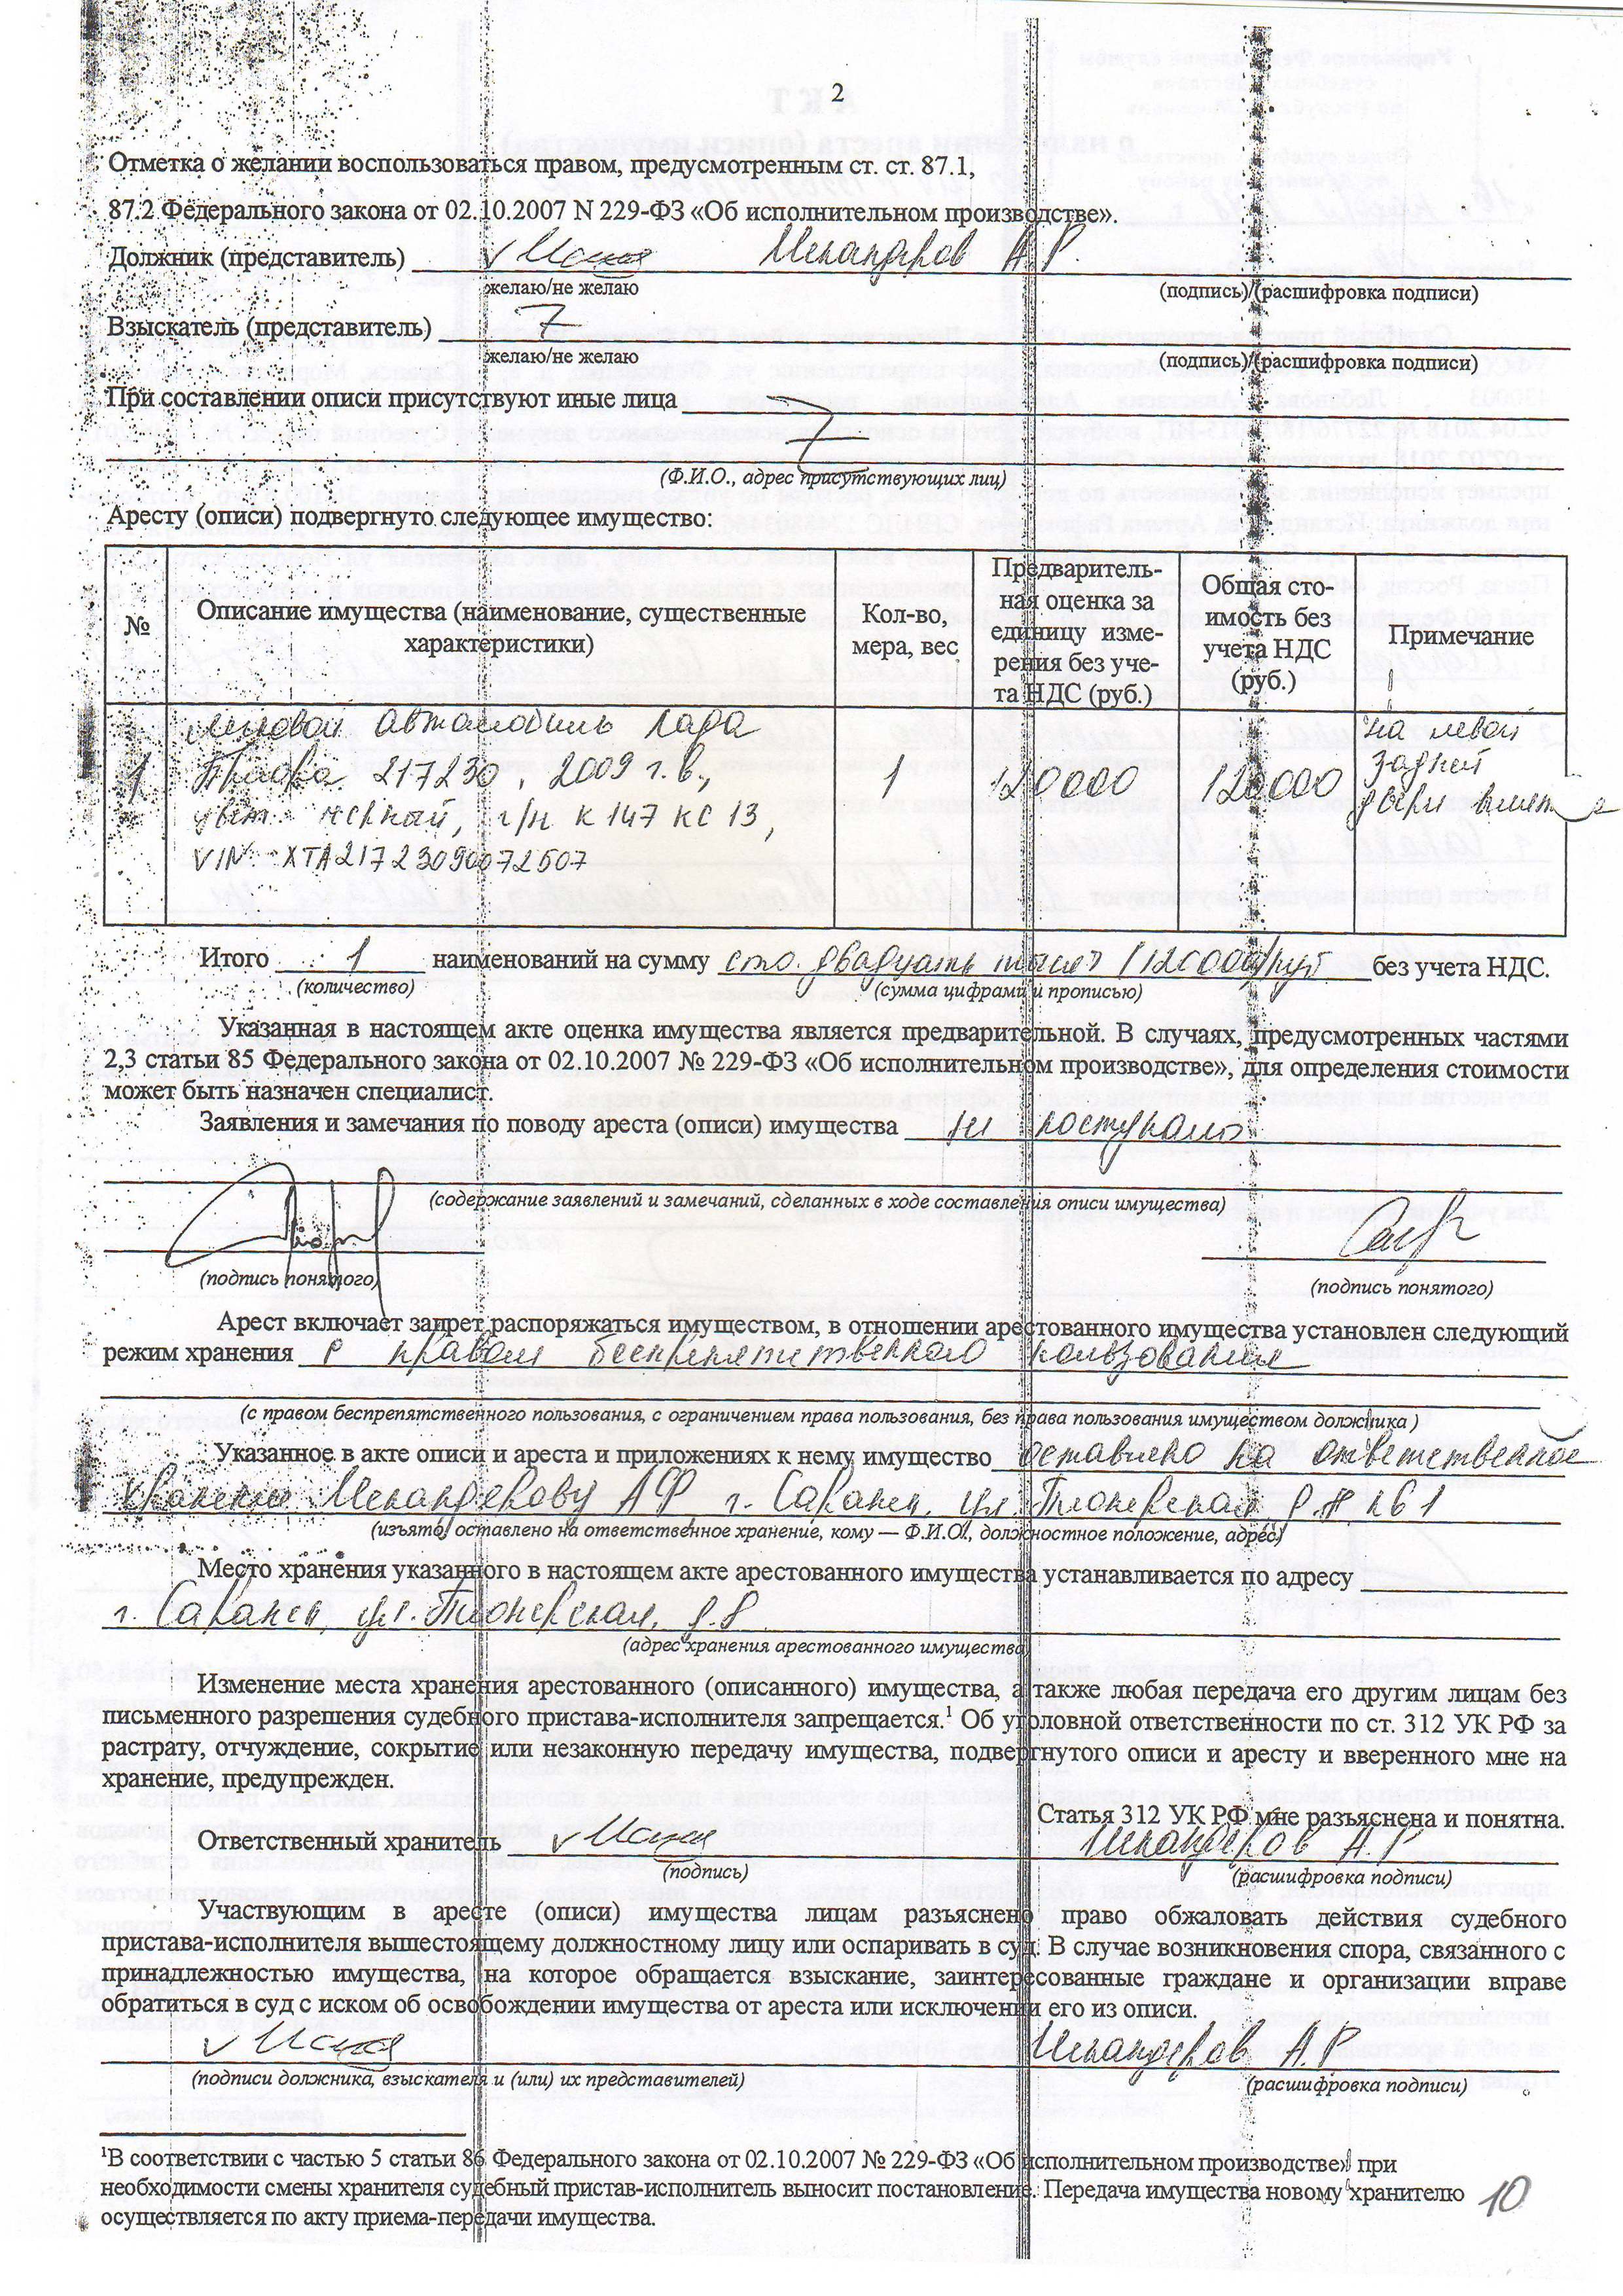 2
Отметка о желании воспользоваться правом, предусмотренным ст. ст. 87.1,
87.2 Федерального закона от 02.10.2007 N 229-ФЗ «Об исполнительном производстве».
Должник (представитель) А.Р.
желаю/не желаю (подпись)/(расшифровка подписи)
Взыскатель (представитель)
желаю/не желаю (подпись)/(расшифровка подписи)
При составлении описи присутствуют иные лица
(Ф.И.О., адрес присутствующих лиц)
Аресту (описи) подвергнуто следующее имущество:
№ Описание имущества (наименование, существенные характеристики) Кол-во, мера, вес Предваритель-ная оценка за единицу изме-рения без уче-та НДС (руб.) Общая сто-имость без учета НДС (руб.) Примечание
1 легковой автомобиль Лада 1 120000 120000 на левой
Приора 217230, 2009 г.в., задней
цвет черный, г/н К 147 КС 13, двери вмят
VIN: XTA21723090072507
Итого 1 наименований на сумму сто двадцать тысяч (120000) руб без учета НДС.
(количество) (сумма цифрами и прописью)
Указанная в настоящем акте оценка имущества является предварительной. В случаях, предусмотренных частями
2,3 статьи 85 Федерального закона от 02.10.2007 № 229-ФЗ «Об исполнительном производстве», для определения стоимости
может быть назначен специалист.
Заявления и замечания по поводу ареста (описи) имущества не поступало
(содержание заявлений и замечаний, сделанных в ходе составления описи имущества)
(подпись понятого) (подпись понятого)
Арест включает запрет распоряжаться имуществом, в отношении арестованного имущества установлен следующий
режим хранения с правом беспрепятственного пользования
(с правом беспрепятственного пользования, с ограничением права пользования, без права пользования имуществом должника )
Указанное в акте описи и ареста и приложениях к нему имущество оставлено на ответственное
хранение г. Саранск, ул. Пионерская, д. 8 кв 1
(изъято/ оставлено на ответственное хранение, кому — Ф.И.О., должностное положение, адрес)
Место хранения указанного в настоящем акте арестованного имущества устанавливается по адресу
г. Саранск, ул. Пионерская, д. 8
(адрес хранения арестованного имущества)
Изменение места хранения арестованного (описанного) имущества, а также любая передача его другим лицам без
письменного разрешения судебного пристава-исполнителя запрещается.¹ Об уголовной ответственности по ст. 312 УК РФ за
растрату, отчуждение, сокрытие или незаконную передачу имущества, подвергнутого описи и аресту и вверенного мне на
хранение, предупрежден.
Статья 312 УК РФ мне разъяснена и понятна.
Ответственный хранитель А.Р
(подпись) (расшифровка подписи)
Участвующим в аресте (описи) имущества лицам разъяснено право обжаловать действия судебного
пристава-исполнителя вышестоящему должностному лицу или оспаривать в суд. В случае возникновения спора, связанного с
принадлежностью имущества, на которое обращается взыскание, заинтересованные граждане и организации вправе
обратиться в суд с иском об освобождении имущества от ареста или исключении его из описи.
А.Р
(подписи должника, взыскателя и (или) их представителей) (расшифровка подписи)
¹В соответствии с частью 5 статьи 86 Федерального закона от 02.10.2007 № 229-ФЗ «Об исполнительном производстве» при
необходимости смены хранителя судебный пристав-исполнитель выносит постановление. Передача имущества новому хранителю
осуществляется по акту приема-передачи имущества.
10